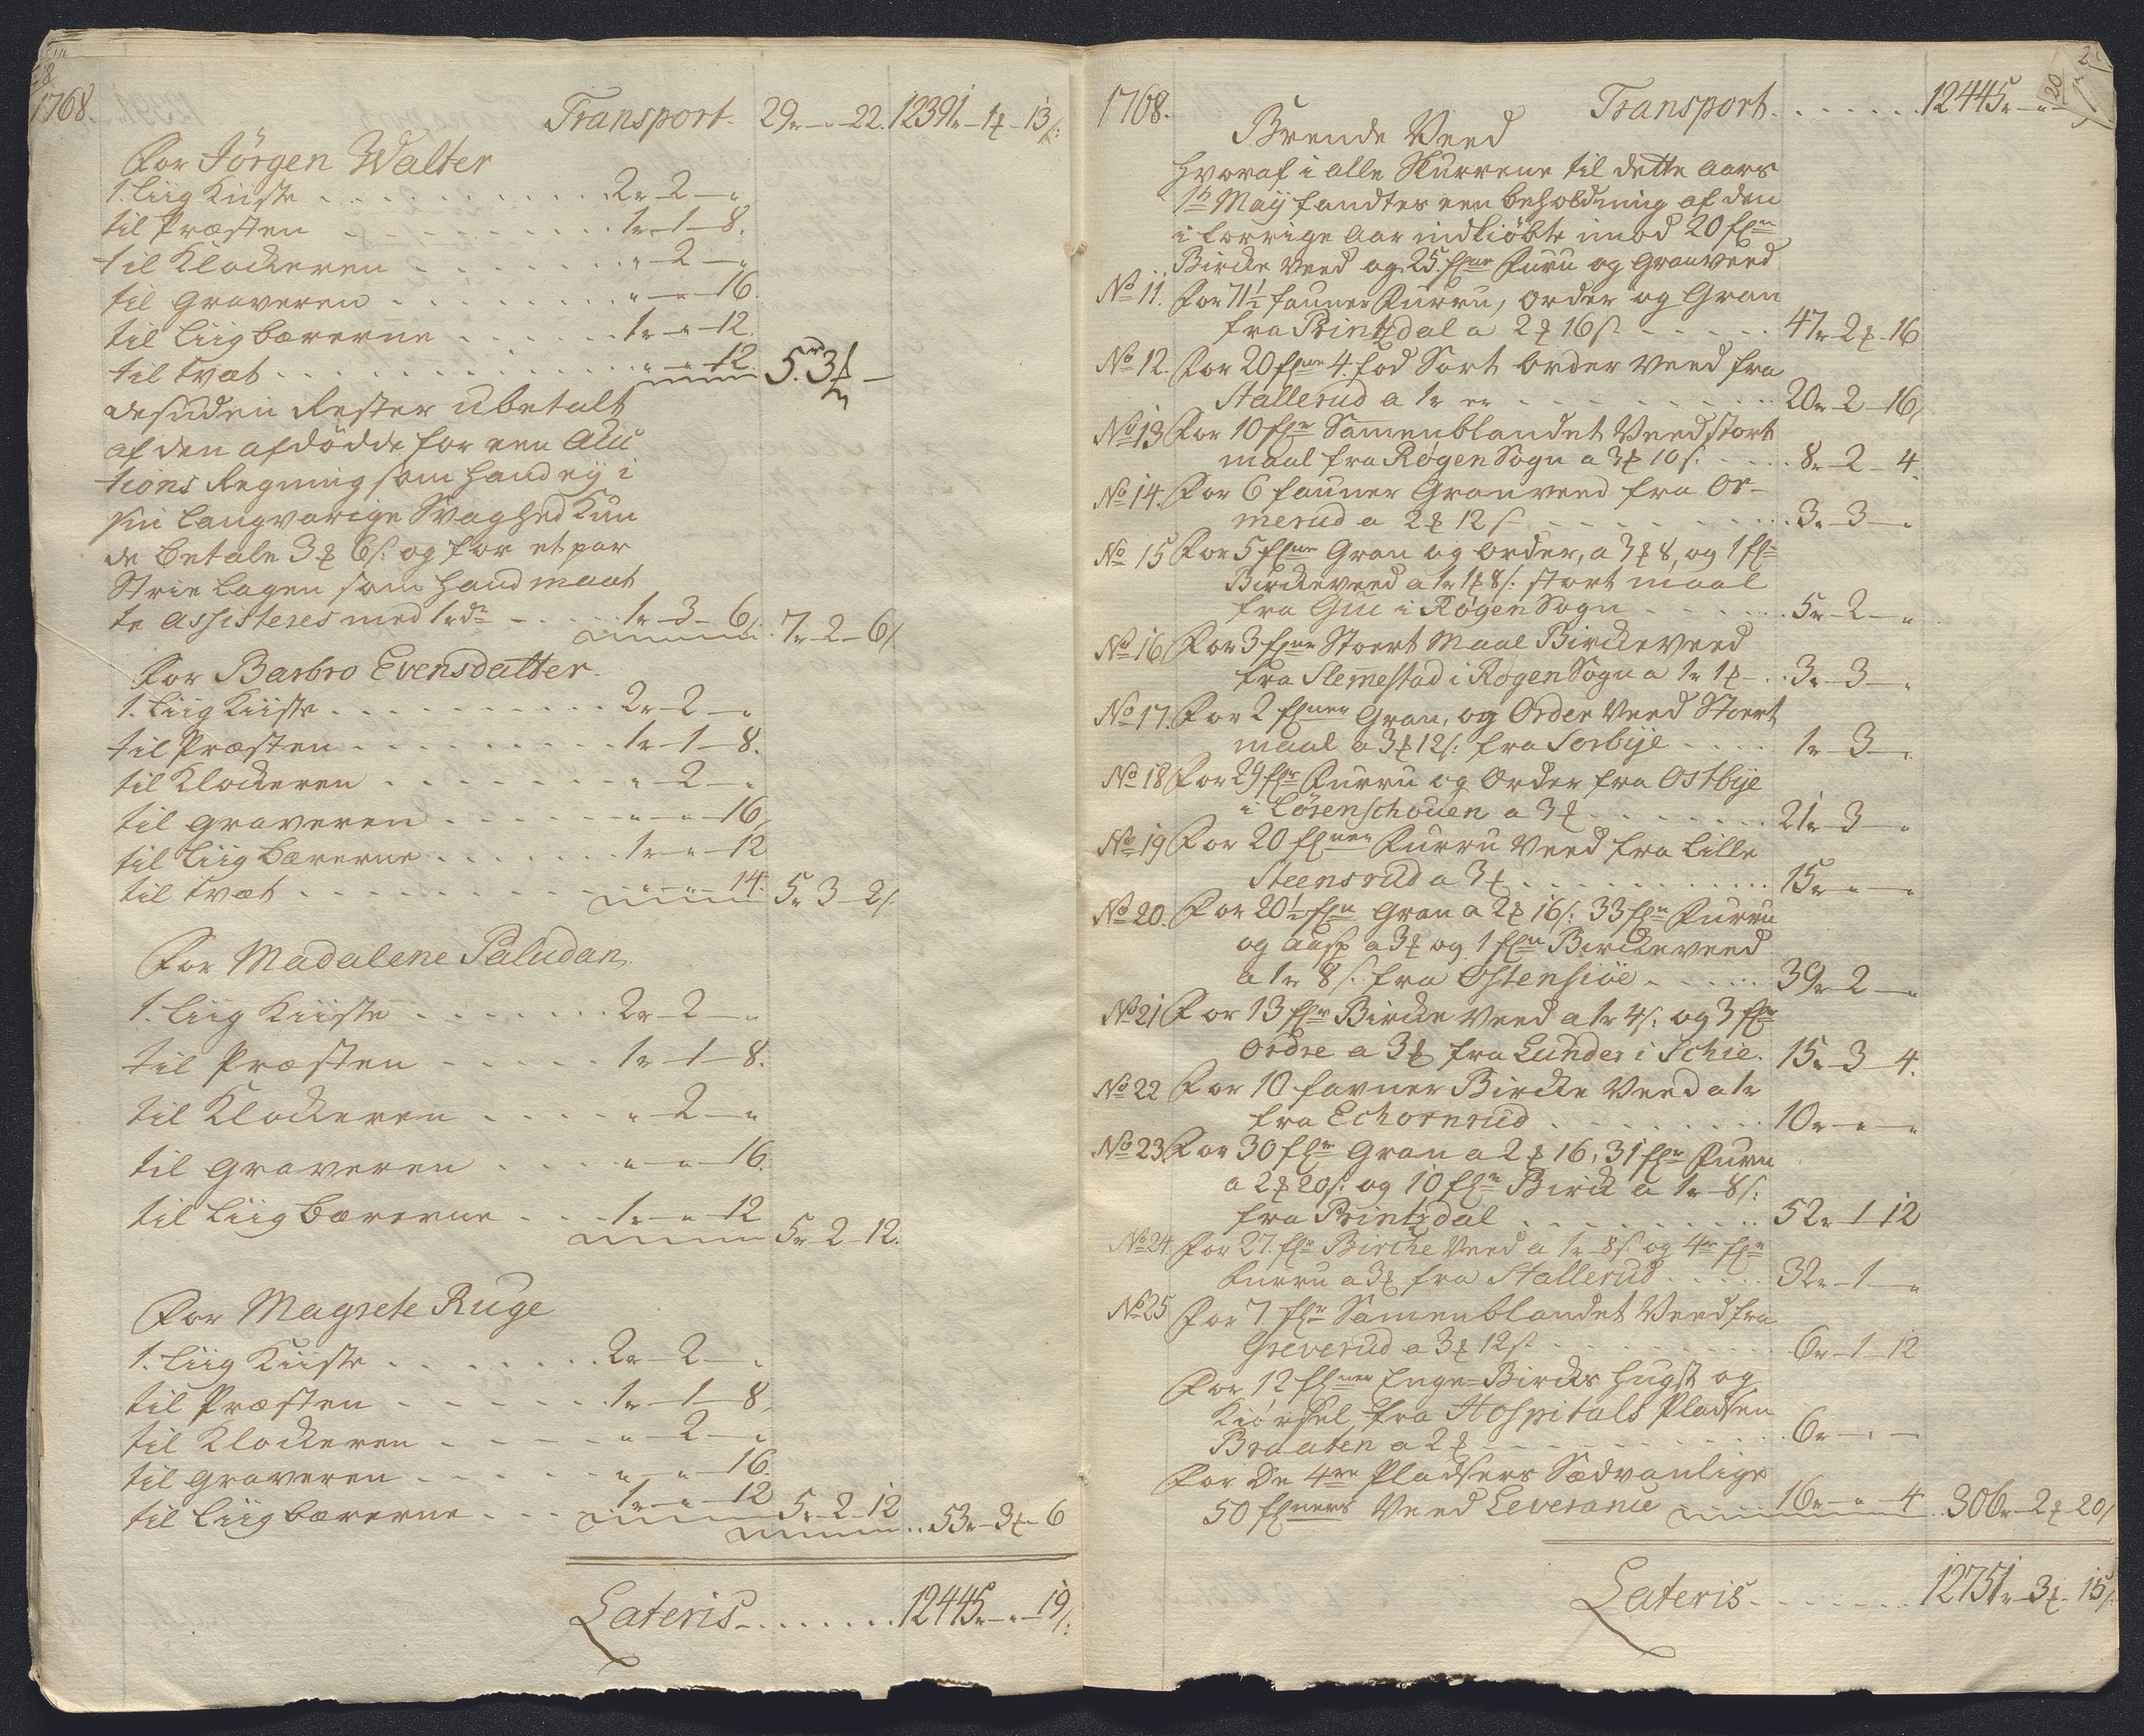 1768.
Transport 29r - " - 22. 12391r - 1 - 13 s:
For Jörgen Walter
1. Liig Kiiste . . . . 2r - 2 - "
til Præsten . . . . 1r - 1 - 8.
til Klockeren . . . . " - 2 - "
til Graveren . . . . " - " - 16.
til Liigbærerne . . . . 1r - " - 12.
til tvæt . . . . " - " - 12. 5. 3
desuden Rester ubetalt
af den afdödde for een Auc
tions Regning som hand ey i
sin langvarige Svaghed Kun
de betale 3 6 s: og for et par
Strie lagen som hand maat
te Assisteres med 1 rdr . . . 1r - 3 - 6. 7r - 2 - 6
For Barbro Evensdatter.
1. Liig Kiiste . . . . 2r - 2 - "
til Præsten . . . . 1r - 1 - 8.
til Klockeren . . . . " - 2 - "
til Graveren . . . . " - " - 16
til Liig bærerne . . . . 1r - " - 12
til tvæt . . . . " - " - 14. 5r 3 - 2
For Madalene Paludan
1. Liig Kiiste . . . . 2r - 2 - "
til Præsten . . . . 1r - 1 - 8.
til Klockeren . . . . " - 2 - "
til Graveren . . . . " - " - 16.
til Liig bærerne . . . 1r - " - 12 5r - 2 - 12.
For Magrete Ruge
1. Liig Kiiste . . . . 2r - 2 - "
til Præsten . . . . 1r - 1 - 8.
til Klockeren . . . . " - 2 - "
til Graveren . . . . " - " - 16.
til Liigbærerne . . . 1r - " - 12 5r - 2 - 12 . . 53r - 3 - 6
Lateris . . . . 12445r - " - 19 s:
1768. Transport . . . . 12445r - "
20
Brende Veed
Hvoraf i alle Skurrene til dette Aars
1te Maij fandtes een beholdning af den
i forrige Aar indkiöbte imod 20 fn
Bircke Veed og 25 fne Furu og Granveed
No 11. For 71½ faune Furru, Order og Gran
fra Printzdal a 2 16 s . . . 47r - 2 - 16
No 12. For 20 fne 4. fod Sort Order Veed fra
Stallerud a 1r . . . . 20r - 2 - 16
No 13 For 10 fne Samenblandet Veed stort
maal fra Røgen Sogn a 3 10 s. . . 8r - 2 - 4
No 14. For 6 fauner Granveed fra Or-
merud a 2 12 s . . . . 3r - 3 - "
No 15 For 5 fne Gran og Order, a 3 8, og 1 fn
Birckeveed a 1r 1 8 s: stort maal
fra Gui i Røgen Sogn . . . . 5r - 2 - "
No 16 For 3 fne Stoert Maal Birckeveed
fra Slemestad i Rogen Sogn a 1r 1 . . 3r - 3 - "
No 17. For 2 fner Gran, og Order Veed Stoert
maal a 3 12 s: fra Sorbije . . . 1r - 3 - "
No 18 For 29 fne Furru og Order fra Ostbije
i Lörenschouen a 3 . . . . 21r - 3 - "
No 19 For 20 fner Furru Veed fra Lille
Steensrud a 3 . . . . 15r - " - "
No 20. For 20½ fn Gran a 2 16 s: 33 fn Furru
og Aasp a 3 og 1 fn Birckeveed
a 1r 8 s: fra Ostensiøe . . . 39r 2 - "
No 21 For 13 fne Bircke Veed a 1r 4 s: og 3 fne
Ordre a 3 fra Lunder i Schie. 15r - 3 - 4.
No 22 For 10 favner Bircke Veed a 1r
fra Echornrud . . . . 10r - " - "
No 23. For 30 fn Gran a 2 16, 31 fn Furu
a 2 20 s: og 10 fn Birck a 1r - 8 s:
fra Printzdal . . . . 52r - 1 12
No 24. For 27. fn Birche Veed a 1r - 8 s og 4re fn
Furru a 3 fra Stallerud . . . 32r - 1 - "
No 25 For 7 fn Samenblandet Veed fra
Greverud a 3 12 s . . . . 6r - 1 - 12
For 12 fner Enge-Bircks Hugst og
Kiörsel, fra Hospitals Pladsen
Braaten a 2 . . . . 6r - " -
For De 4re Pladsers Sædvanlige
50 fners Veed Leverance . . . 16r - " - 4 . . 306r - 2 - 20
Lateris . . . . 12751r - 3 - 15 s